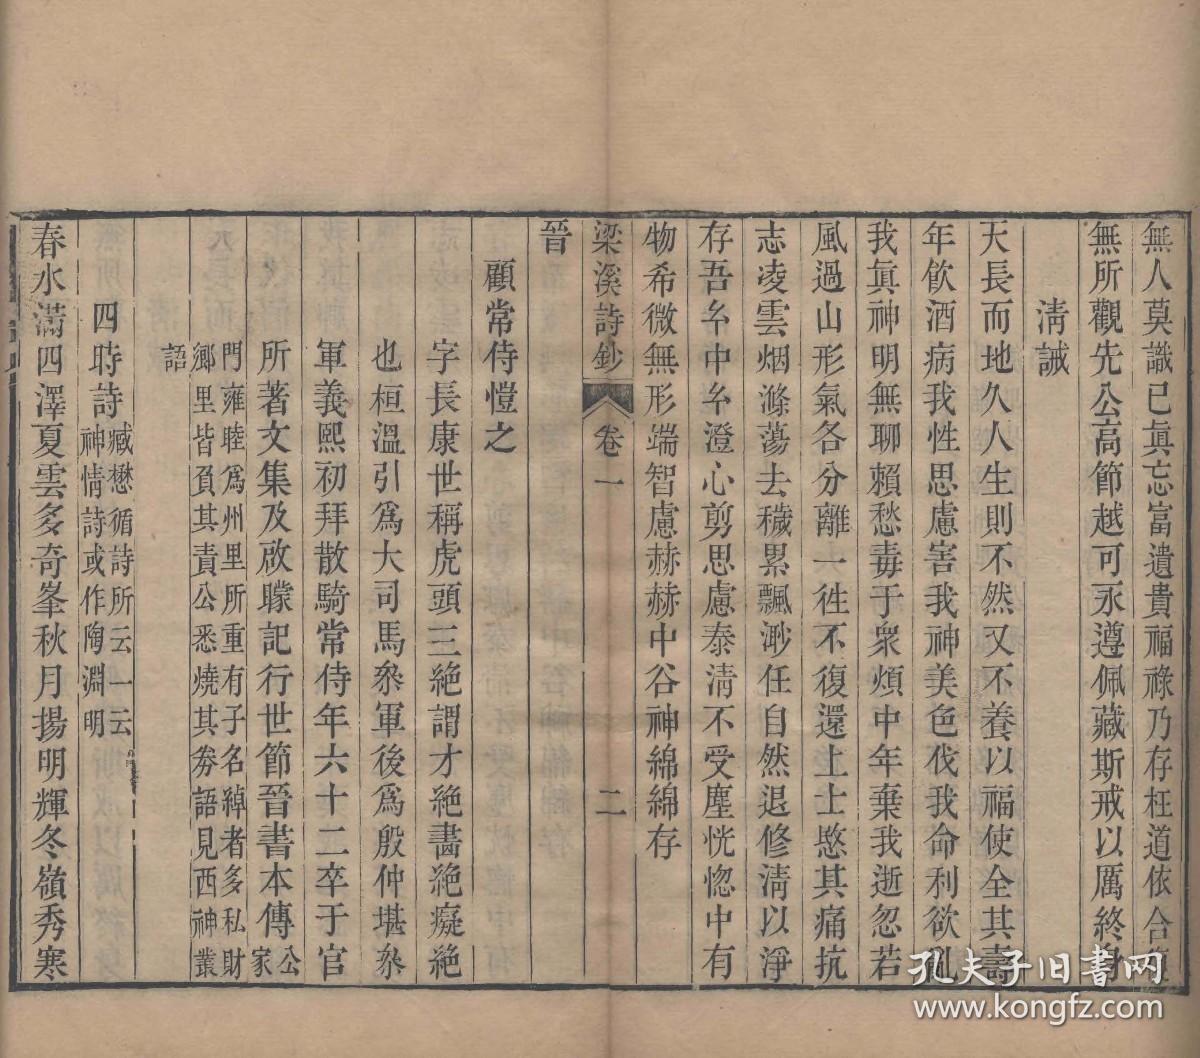 無人莫識已眞忘富遺貴福祿乃存枉道依合復
無所觀先公高節越可永遵佩藏斯戒以厲終身
淸誡
天長而地久人生則不然又不養以福使全其壽
年飮酒病我性思慮害我神美色伐我命利欲亂
我眞神明無聊賴愁毒于衆煩中年棄我逝忽若
風過山形氣各分離一徃不復還上士愍其痛抗
志凌雲烟滌蕩去穢累飄渺任自然退修淸以淨
存吾𢆯中𢆯澄心剪思慮泰淸不受塵恍惚中有
物希微無形端智慮赫赫中谷神綿綿存
梁溪詩鈔 卷一 二
晉
顧常侍愷之
字長康世稱虎頭三絕謂才絕畵絕癡絕
也桓溫引爲大司馬叅軍後爲殷仲堪叅
軍義熙初拜散騎常侍年六十二卒于官
所著文集及啟矇記行世節晉書本傳公家
門雍睦爲州里所重有子名綽者多私財
鄉里皆負其責公悉燒其劵語見西神叢
語
四時詩臧懋循詩所云一云
神情詩或作陶淵明
春水滿四澤夏雲多奇峯秋月揚明輝冬嶺秀寒
孔夫子旧书网
www.kongfz.com